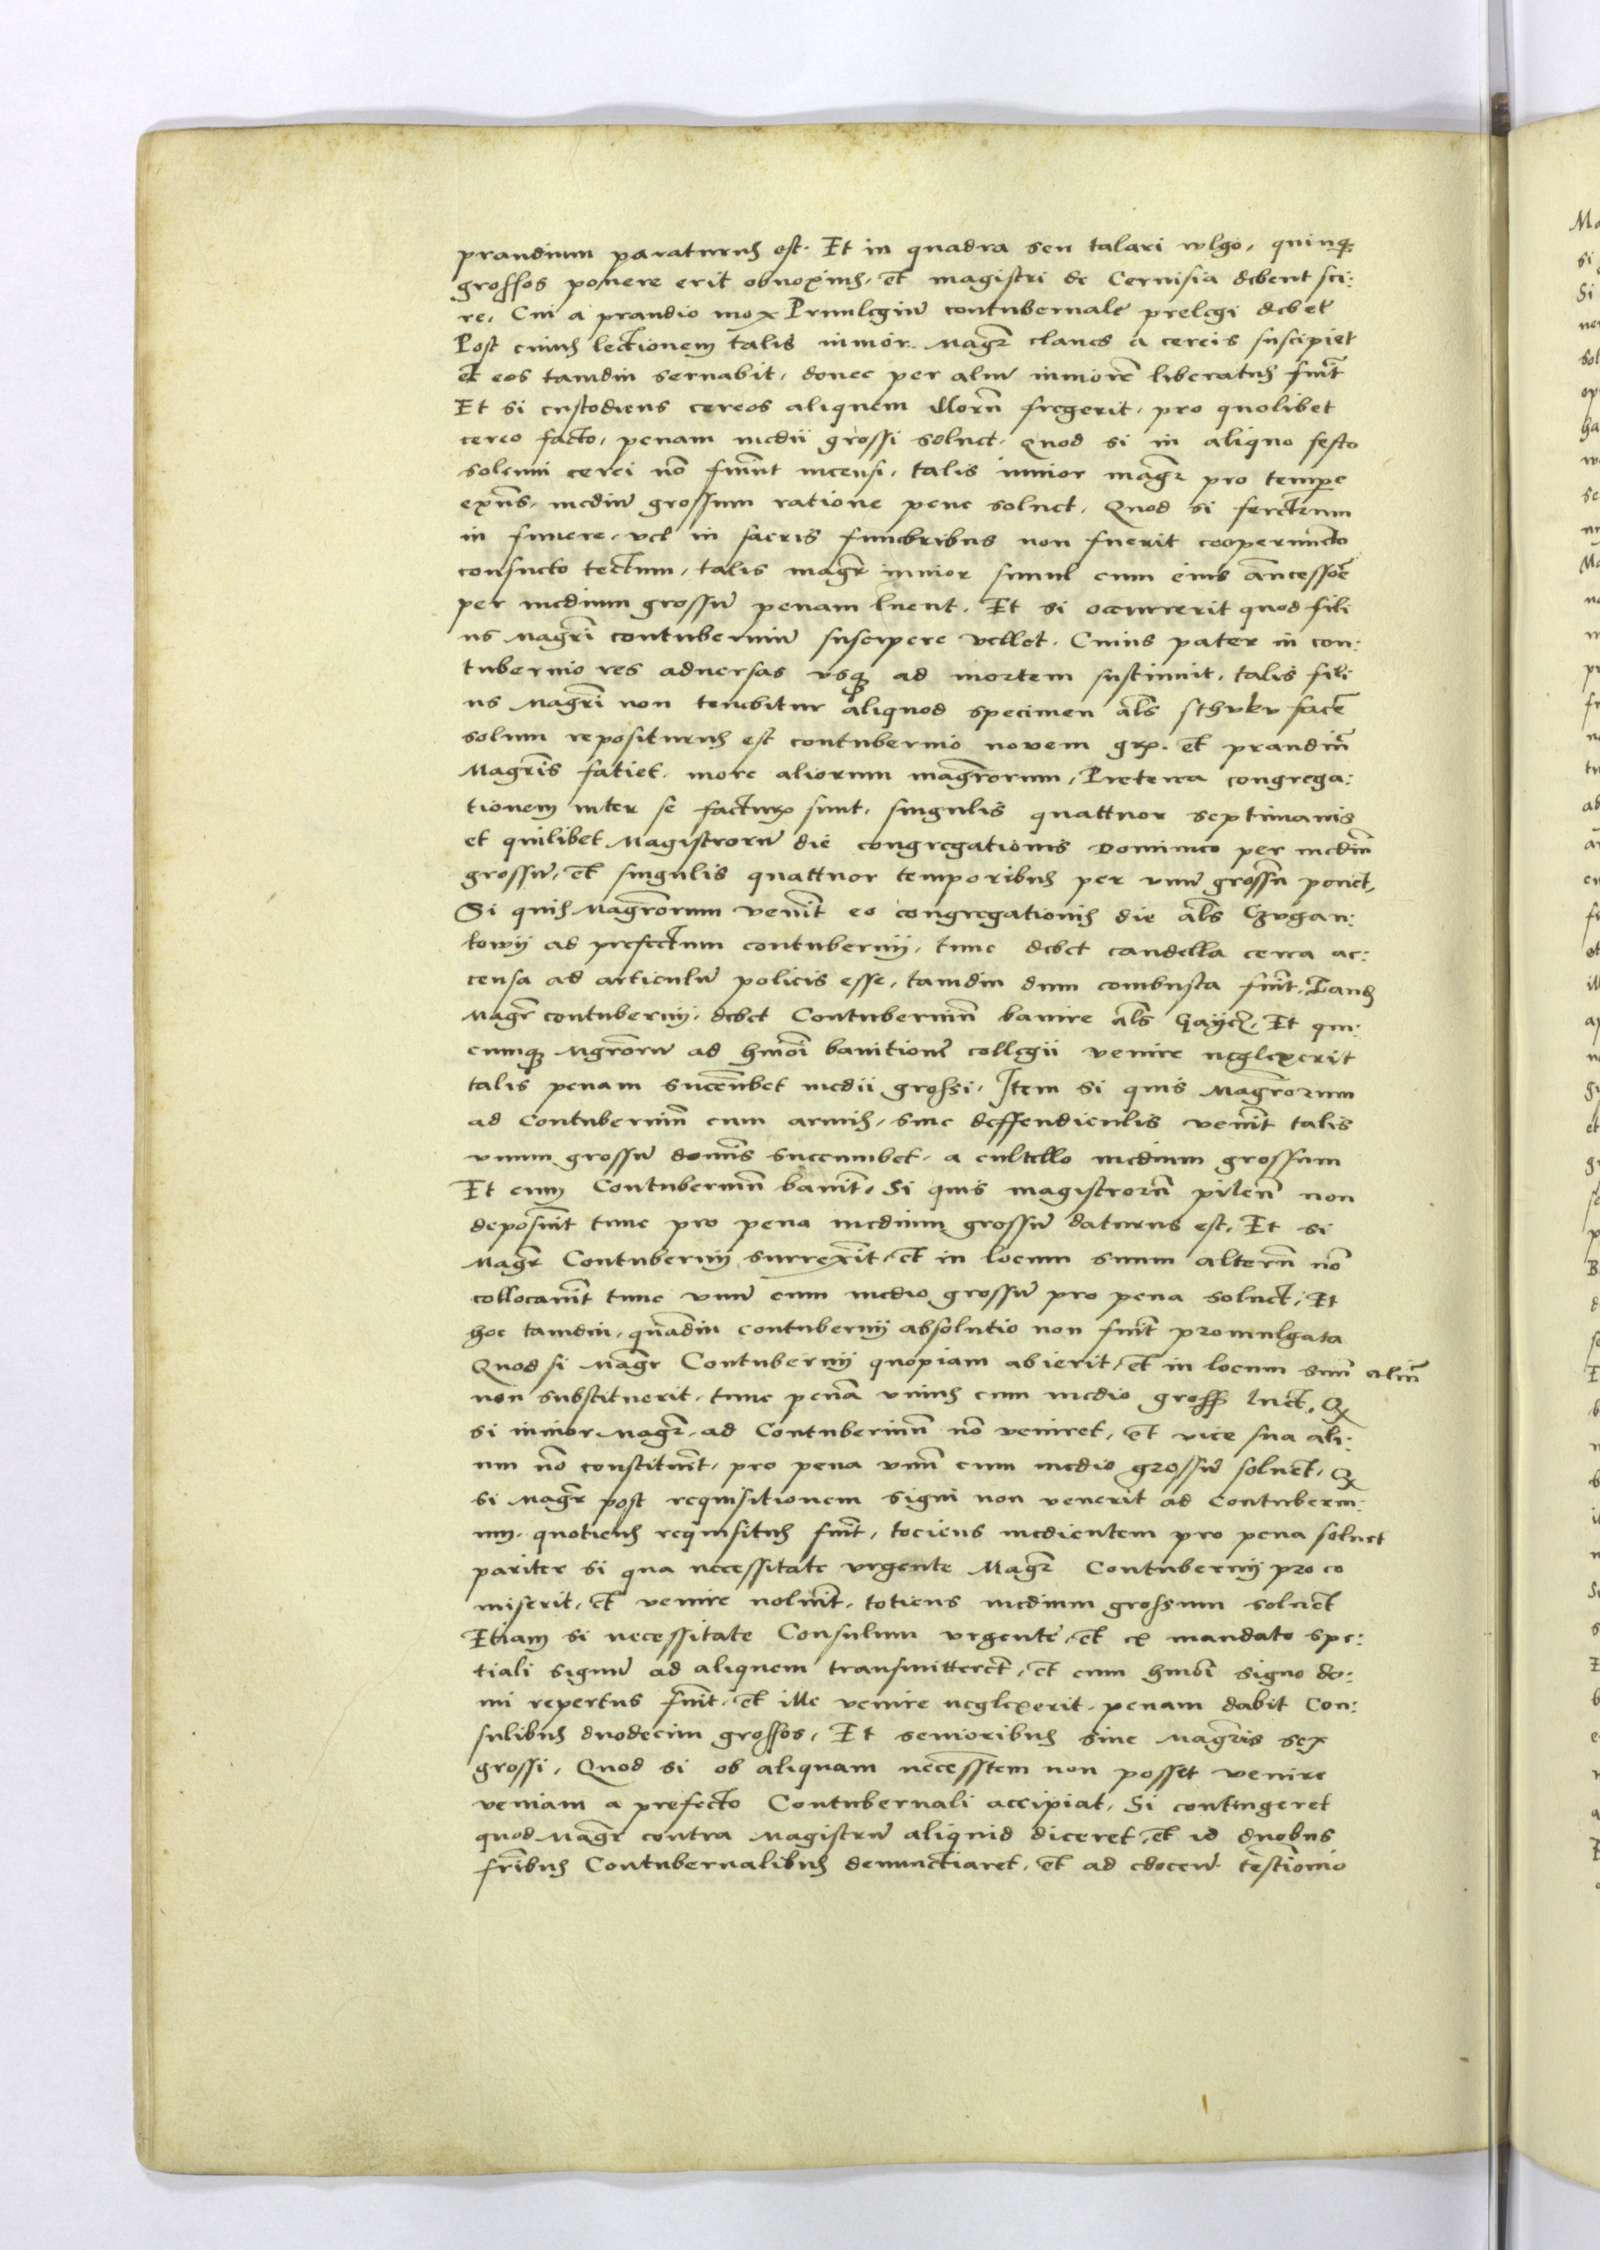 prandium paraturus est. Et in quadra seu talari wlgo, quinq3
grossos ponere erit obnoxius, et magistri de Cervisia debent sci:
re, Cui a prandio mox Privilegiū contubernale prelegi debet
Post cuius lectionem talis iunior Magr̄ claves a cereis suscipiet
et eos tamdiu servabit, donec per aliū iuniorē liberatus fuīt
Et si custodiens cereos aliquem illorū fregerit, pro quolibet
cereo facto, penam medii grossi solvet. Quod si in aliquo festo
solenni cerei nō fuīnt incensi, talis iunior magr̄ pro tempe
exn̄s, mediū grossum ratione pene solvet. Quod si feretrum
in funere, vel in sacris funebribus non fuerit cooperimēto
consueto tectum, talis magr̄ iunior simul cum eius ān̄cessōe
per medium grossū penam luent. Et si occurrerit quod fili
us Magr̄i contuberniū suscipere vellet. Cuius pater in con:
tubernio res adversas vsq3 ad mortem sustinuit, talis fili
us Magr̄i non tenebitur aliquod specimen al̄s sthuku facē
solum repositurus est contubernio novem grx. et prandiū
Magr̄is fatiet, more aliorum magr̄orum, Preterea congrega:
tionem inter se facturx sunt, singulis quattuor septimanis
et quilibet Magistrorū die congregationis Dominico per mediū
grossū, et singulis quattuor temporibus per unū grossū ponet,
Si quis Magr̄orum venīt eo congregationis die al̄s Czvgan:
towij ad prefectum contubernij, tunc debet candella cerea ac:
censa ad articulū policis esse, tamdiu dum combusta fuīt,
Magr̄ contubernij, debet Contuberniū banire al̄s Gaycz. Et qui:
cumq3 Mgrōrū ad hm̄oi banitionē collegii venire neglexerit
talis penam succūbet medii grossi, Item si quis Magr̄orum
ad Contuberniū cum armis, sine deffendiculis venīt talis
vnum grossū domīs succumbet, a cultello medium grossum
Et cum Contuberniū banīt, Si quis magistrorū pileū non
deposuīt tunc pro pena medium grossū daturus est, Et si
Magr̄ Contubernij surrexīt, et in locum suum alterū nō
collocavīt tunc vnū cum medio grossū pro pena solvet, Et
hoc tamdiu, quādiu contubernij absolutio non fuīt promulgata
Quod si Magr̄ Contubernij quopiam abierit, et in locum suū aliū
non substituerit, tunc penā vnius cum medio gross luet, Qx
si iunior Magr̄, ad Contuberniū nō veniret, et vice sua ali:
um nō constituīt, pro pena vnū cum medio grossū solvet, Qx
si Magr̄ post requisitionem signi non venerit ad Contuberni:
um, quotiens requisitus fuīt, tociens medientem pro pena solvet
pariter si qua necessitate vrgente Magr̄ Contubernij pro eo
miserit, et venire noluīt, totiens medium grossum solvet
Etiam si necessitate Consulum vrgente, et ex mandato spe:
tiali signū ad aliquem transmitteret, et cum hm̄oi signo do:
mi repertus fuīt, et ille venire neglexerit, penam dabit Con:
sulibus duodecim grossos, Et senioribus sine Magr̄is sex
grossi, Quod si ob aliquam necess̄tem non posset venire
veniam a prefecto Contubernali accipiat, Si contingeret
quod Magr̄ contra Magistrū aliquid diceret, et id duobus
fr̄ibus Contubernalibus denunctiaret, et ad edocen̄ testīonio